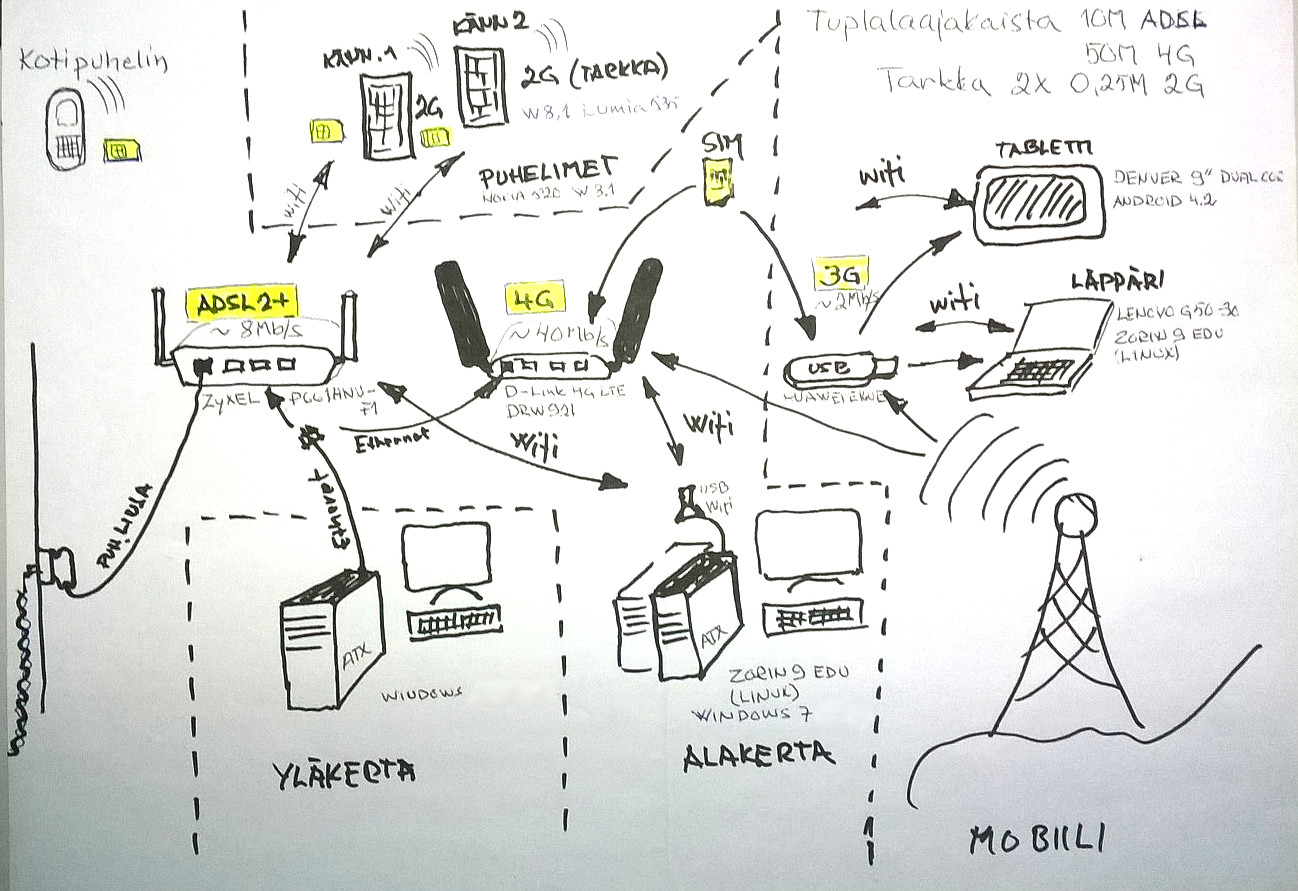 Tuplalaajakaista 10M ADSL
50M 4G
Tarkka 2X 0,25M 2G
Kotipuhelin
KÄNN.1
KÄNN 2
2G
2G (TARKKA)
W8,1 Lumia 535
PUHELIMET
NOKIA 920 W 8.1
wifi
wifi
SIM
TABLETTI
wifi
DENVER 9" DUAL
ANDROID 4.2
3G
~2Mb/s
LÄPPÄRI
wifi
LENOVO G50-30
ZORIN 9 EDU
(LINUX)
USB
HUAWEI
ADSL2+
~8Mb/s
ZyXEL
4G
~40Mb/s
D-Link 4G LTE
DRW921
Ethernet
Wifi
Wifi
USB
Wifi
PUH.
Ethernet
ATX
WINDOWS
YLÄKERTA
ATX
ZORIN 9 EDU
(LINUX)
WINDOWS 7
ALAKERTA
MOBIILI